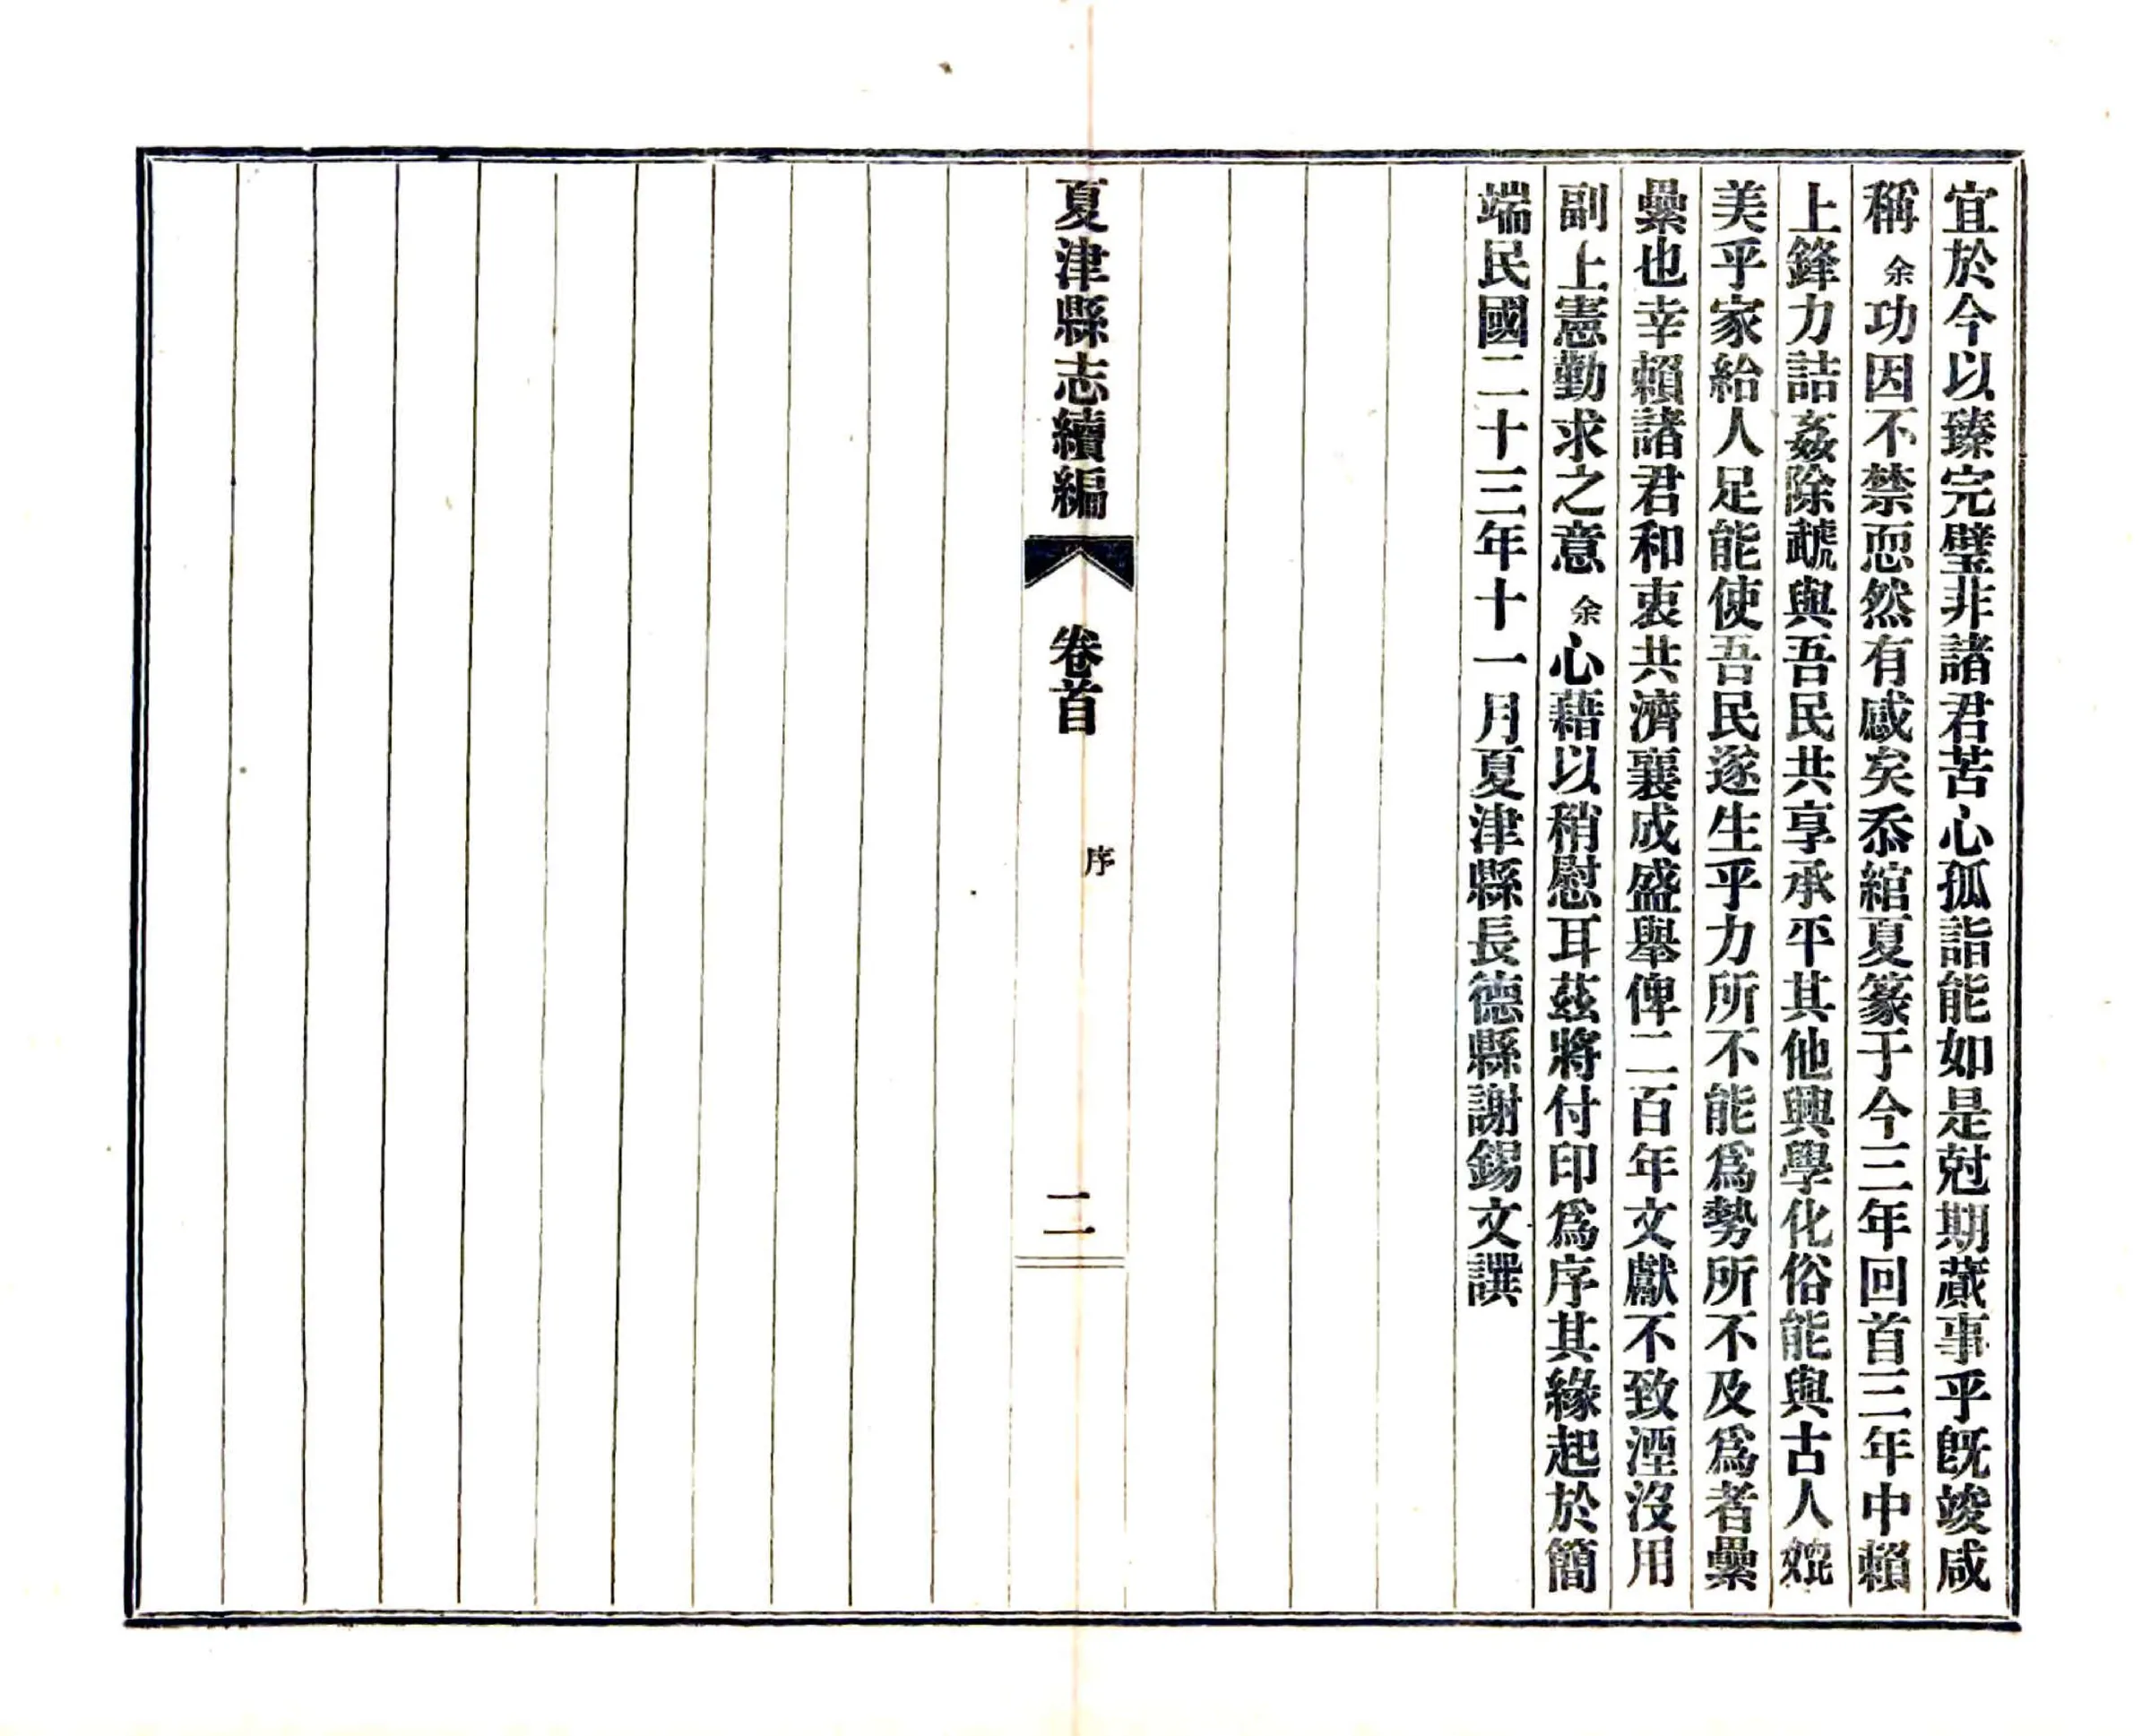 宜於今以臻完璧非諸君苦心孤詣能如是尅期蕆事乎既竣咸
稱余功因不禁恧然有感矣忝綰夏篆于今三年回首三年中賴
上鋒力詰姦除虣與吾民共享承平其他興學化俗能與古人媲
美乎家給人足能使吾民遂生乎力所不能為勢所不及為者纍
纍也幸賴諸君和衷共濟襄成盛舉俾二百年文獻不致湮沒用
副上憲勤求之意余心藉以稍慰耳茲將付印爲序其緣起於簡
端民國二十三年十一月夏津縣長德縣謝錫文譔
夏津縣志續編 卷首 序 二